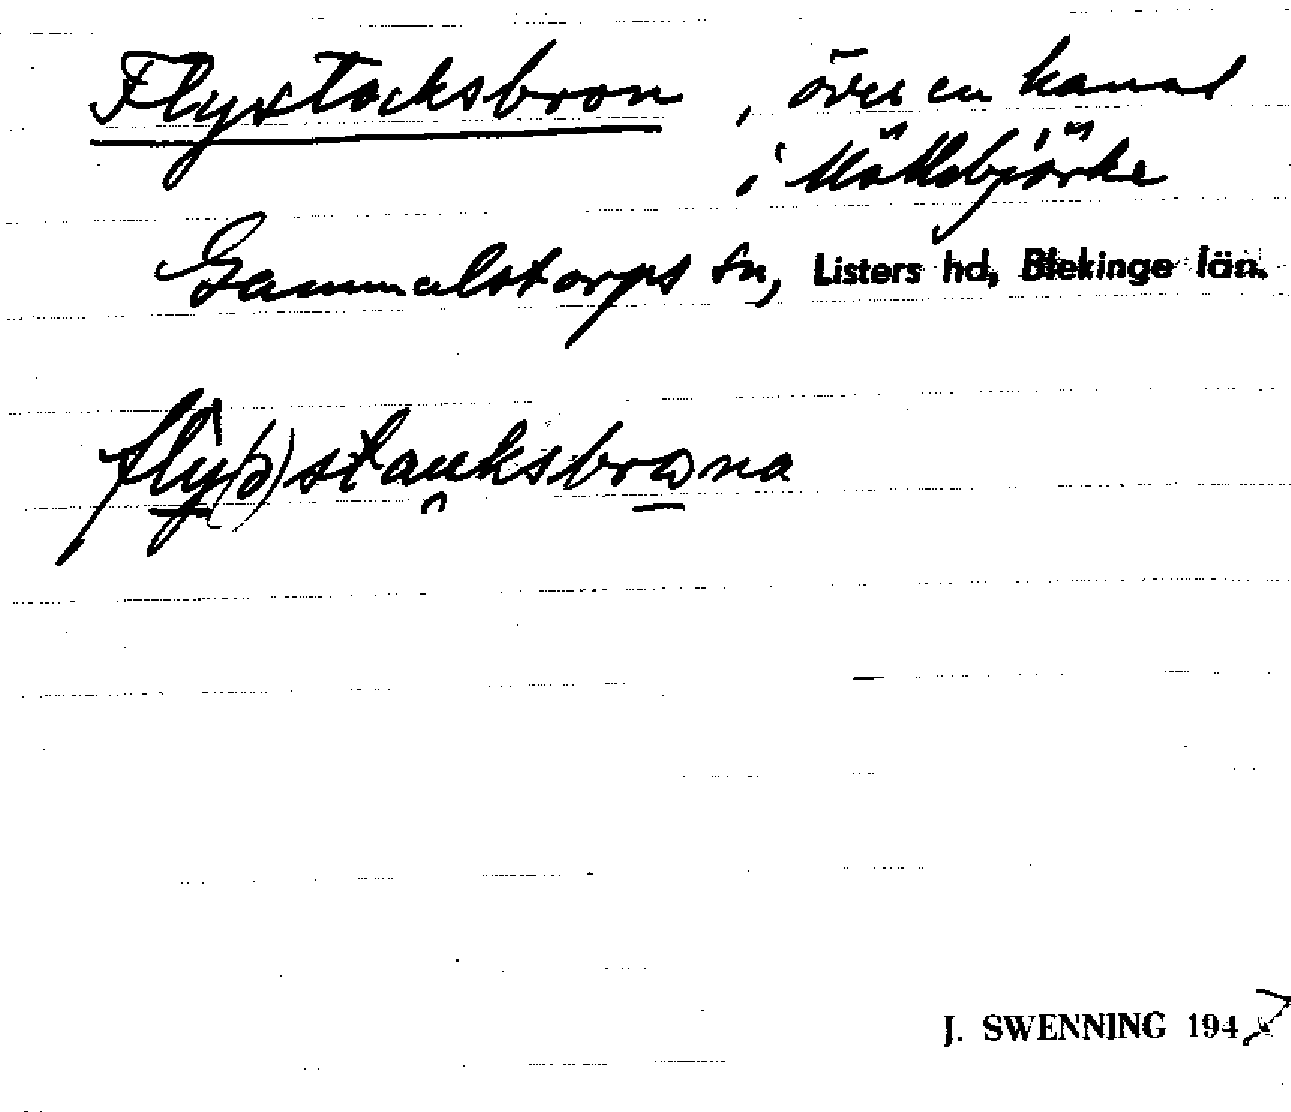 Flystocksbron, över en kanal
i Möllebjörke
Gammalstorps sn, Listers hd, Blekinge län.
fly(ə)stauksbrona
J. SWENNING 1947